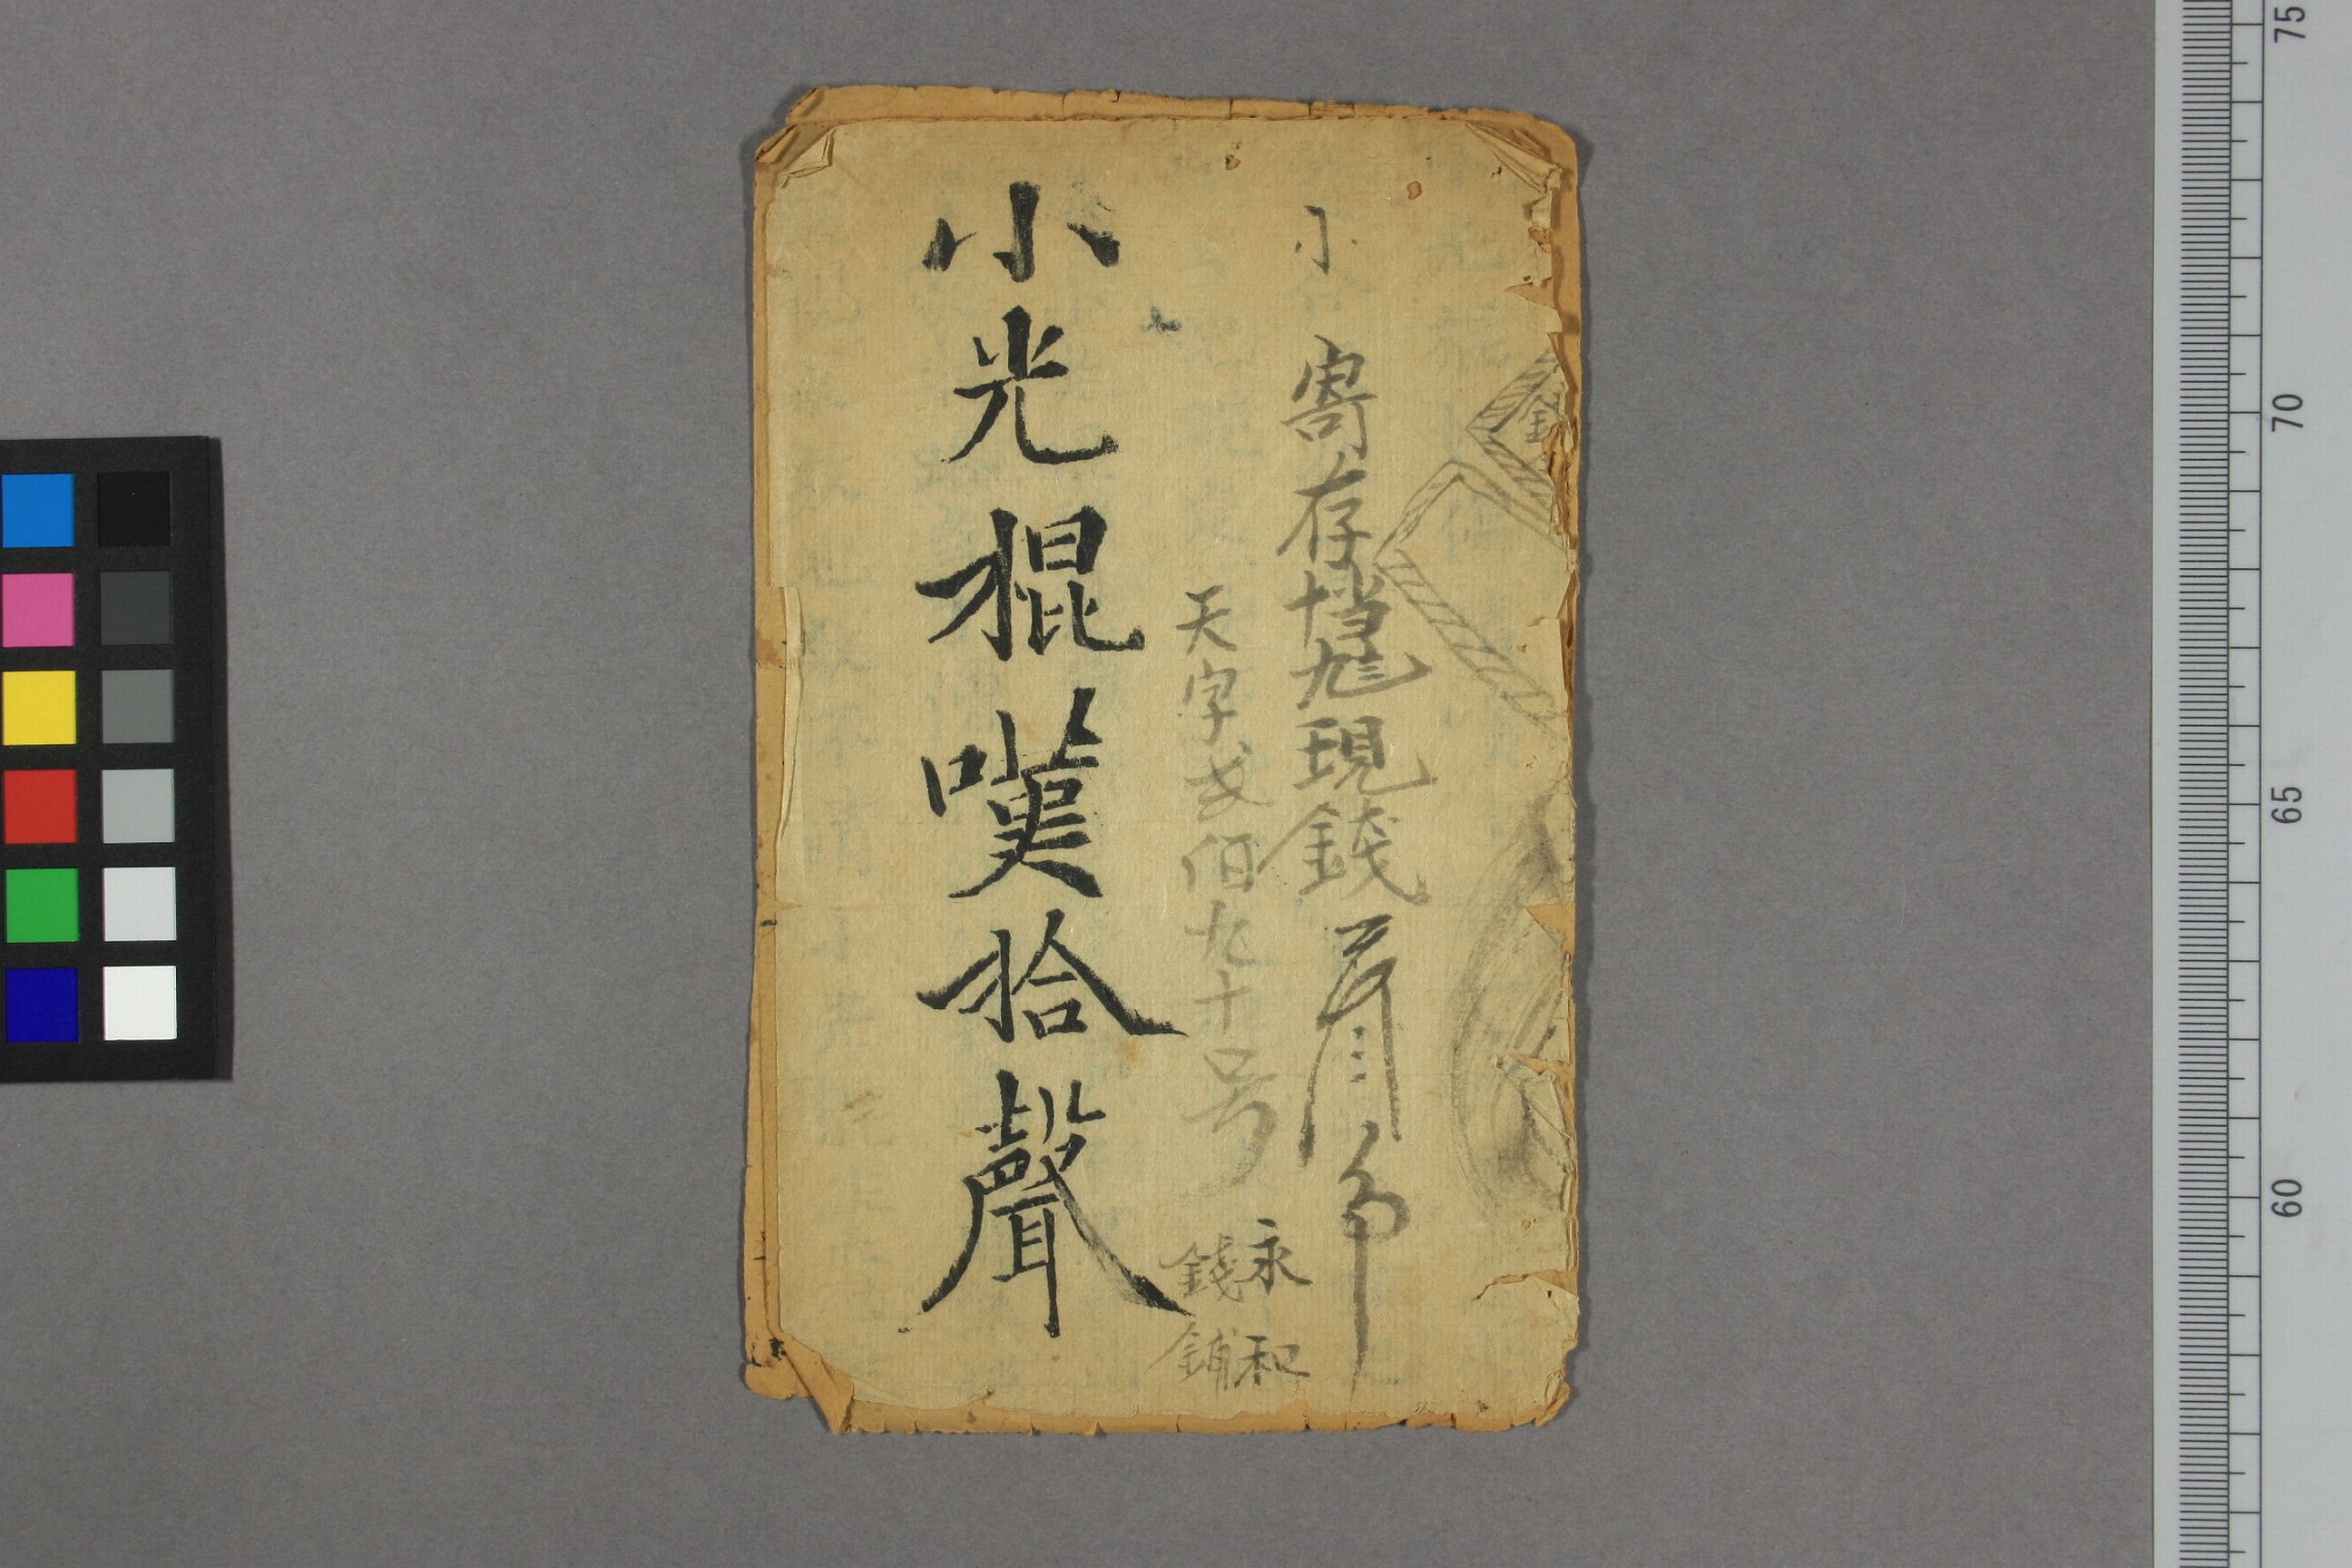 小
寄存當現錢
天字弍佰九十号
永和
錢鋪
小光棍嘆拾聲
75
70
65
60